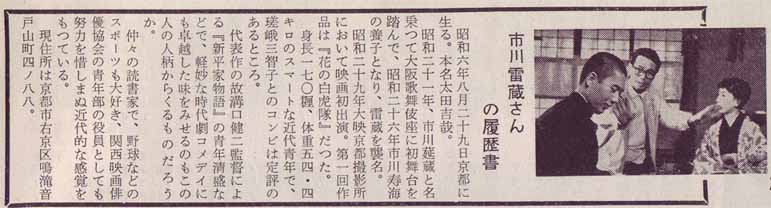 市川雷蔵さん
の履歴書
昭和六年八月二十九日京都に
生る。本名太田吉哉。
昭和二十一年、市川莚蔵と名
乗つて大阪歌舞伎座に初舞台を
踏んで、昭和二十六年市川寿海
の養子となり、雷蔵を襲名。
昭和二十九年大映京都撮影所
において映画初出演。第一回作
品は『花の白虎隊』だつた。
身長一七〇糎、体重五四・四
キロのスマートな近代青年で、
嵯峨三智子とのコンビは定評の
あるところ。
代表作の故溝口健二監督によ
る『新平家物語』の青年清盛な
どで、軽妙な時代劇コメデイに
も卓越した味をみせるのもこの
人の人柄からくるものだろう
か。
仲々の読書家で、野球などの
スポーツも大好き、関西映画俳
優協会の青年部の役員としても
努力を惜しまぬ近代的な感覚を
もつている。
現住所は京都市右京区鳴滝音
戸山町四ノ八八。